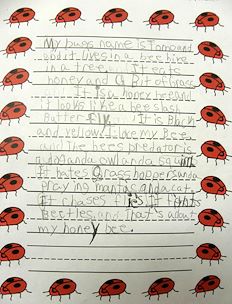 My bugs name is tomo and
and it lives in a bee hive
in a tree. It eats
honey and a bit of grass
It is a honey bee and
it looks like a bee slash
Butter fly. It is Black
and yellow I love my Bee.
and The bees predator is
and an owl and a
It hates Grasshoppers and a
praying mantas and a cat.
It chases flies It hunts
Beetles. and That's about
my honey bee.